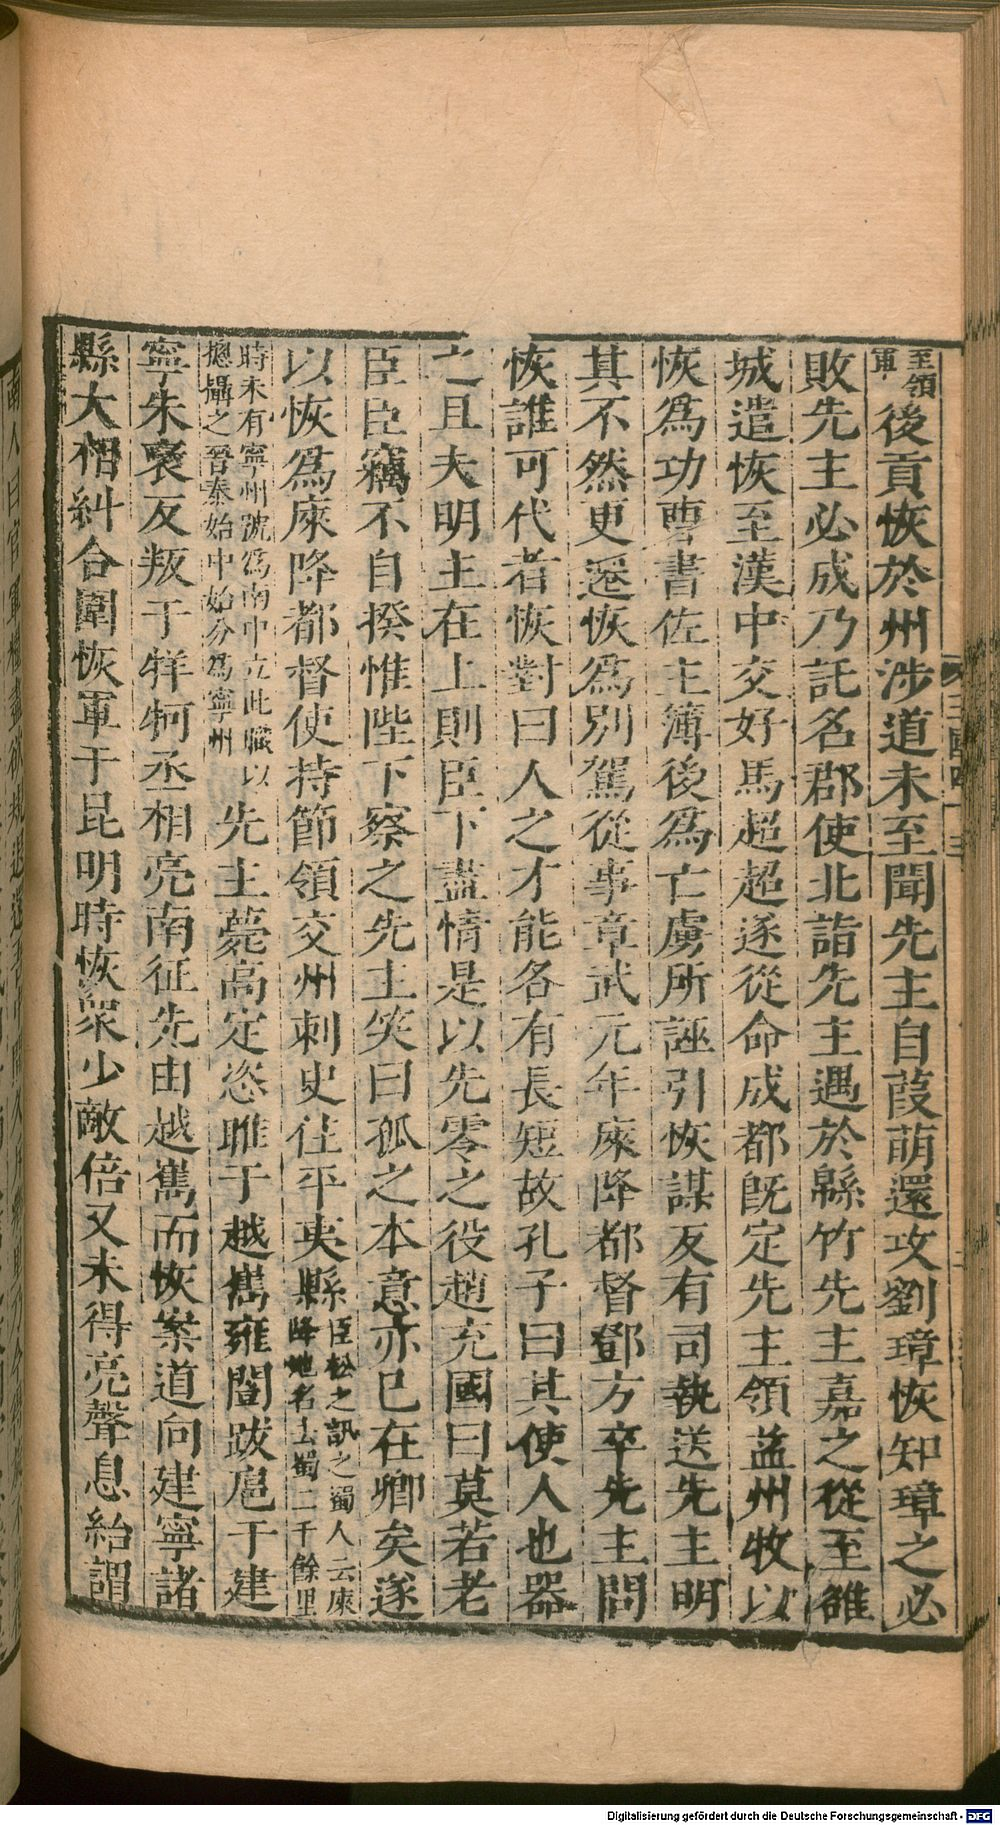 至領軍後貢恢於州涉道未至聞先主自葭萌還攻劉璋恢知璋之必
敗先主必成乃託名郡使北詣先主遇於緜竹先主嘉之從至雒
城遣恢至漢中交好馬超超遂從命成都既定先主領益州牧以
恢爲功曹書佐主簿後爲亡虜所誣引恢謀反有司執送先主明
其不然更遷恢爲別駕從事章武元年庲降都督鄧方卒先主問
恢誰可代者恢對曰人之才能各有長短故孔子曰其使人也器
之且夫明主在上則臣下盡情是以先零之役趙充國曰莫若老
臣臣竊不自揆惟陛下察之先主笑曰孤之本意亦已在卿矣遂
以恢爲庲降都督使持節領交州刺史住平夷縣臣松之訊之蜀人云庲降地名去蜀二千餘里
時未有寧州號爲南中立此職以摠攝之晉泰始中始分爲寧州先主薨高定恣睢于越嶲雍闓跋扈于建
寧朱襃反叛于牂牁丞相亮南征先由越嶲而恢案道向建寧諸
縣大相糾合圍恢軍于昆明時恢衆少敵倍又未得亮聲息紿謂
三國四十三
Digitalisierung gefördert durch die Deutsche Forschungsgemeinschaft - DFG